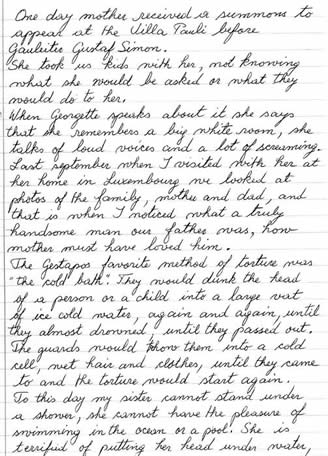 One day mother received a summons to
appear at the Villa Pauli before
Gauleiter Gustaf Simon.
She took us kids with her, not knowing
what she would be asked or what they
would do to her.
When Georgette speaks about it she says
that she remembers a big white room, she
talks of loud voices and a lot of screaming.
Last september when I visited with her at
her home in Luxembourg we looked at
photos of the family, mother and dad, and
that is when I noticed what a truly
handsome man our father was, how
mother must have loved him.
The Gestapos favorite method of torture was
"the cold bath". They would dunk the head
of a person or a child into a large vat
of ice cold water, again and again, until
they almost drowned, until they passed out.
The guards would throw them into a cold
cell, wet hair and clothes, until they came
to and the torture would start again.
To this day my sister cannot stand under
a shower, she cannot have the pleasure of
swimming in the ocean or a pool. She is
terrified of putting her head under water,